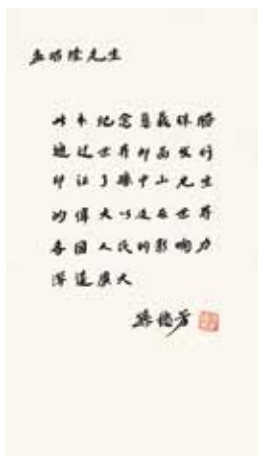 孟昭隆先生
此本纪念
遍过世界印出发行
印证了孙中山先生
的伟大以及在世界
各国人民的影响力
深远广大
孙穗芳